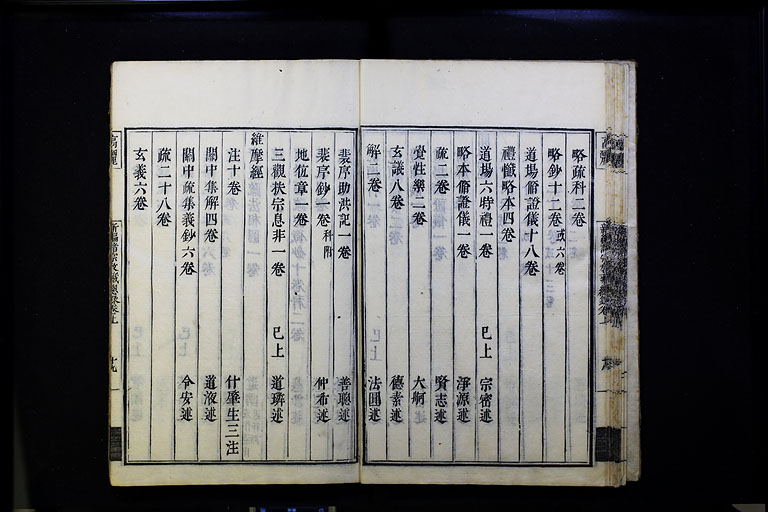 略疏科二卷
略鈔十二卷 或六卷
道場修證儀十八卷
禮懺略本四卷
道場六時禮一卷 已上 宗密述
略本修證儀一卷 淨源述
疏二卷 賢志述
覺性樂二卷 大舸述
玄議八卷 德素述
解二卷 法圓述
裴序助洪記一卷 善聰述
裴序鈔一卷 科附 仲希述
地位章一卷
三觀扶宗息非一卷 已上 道璘述
維摩經
注十卷 什肇生三注
關中集解四卷 道液述
關中疏集義鈔六卷 令安述
疏二十八卷
玄義六卷
高麗
新編諸宗教藏總錄卷上
十九